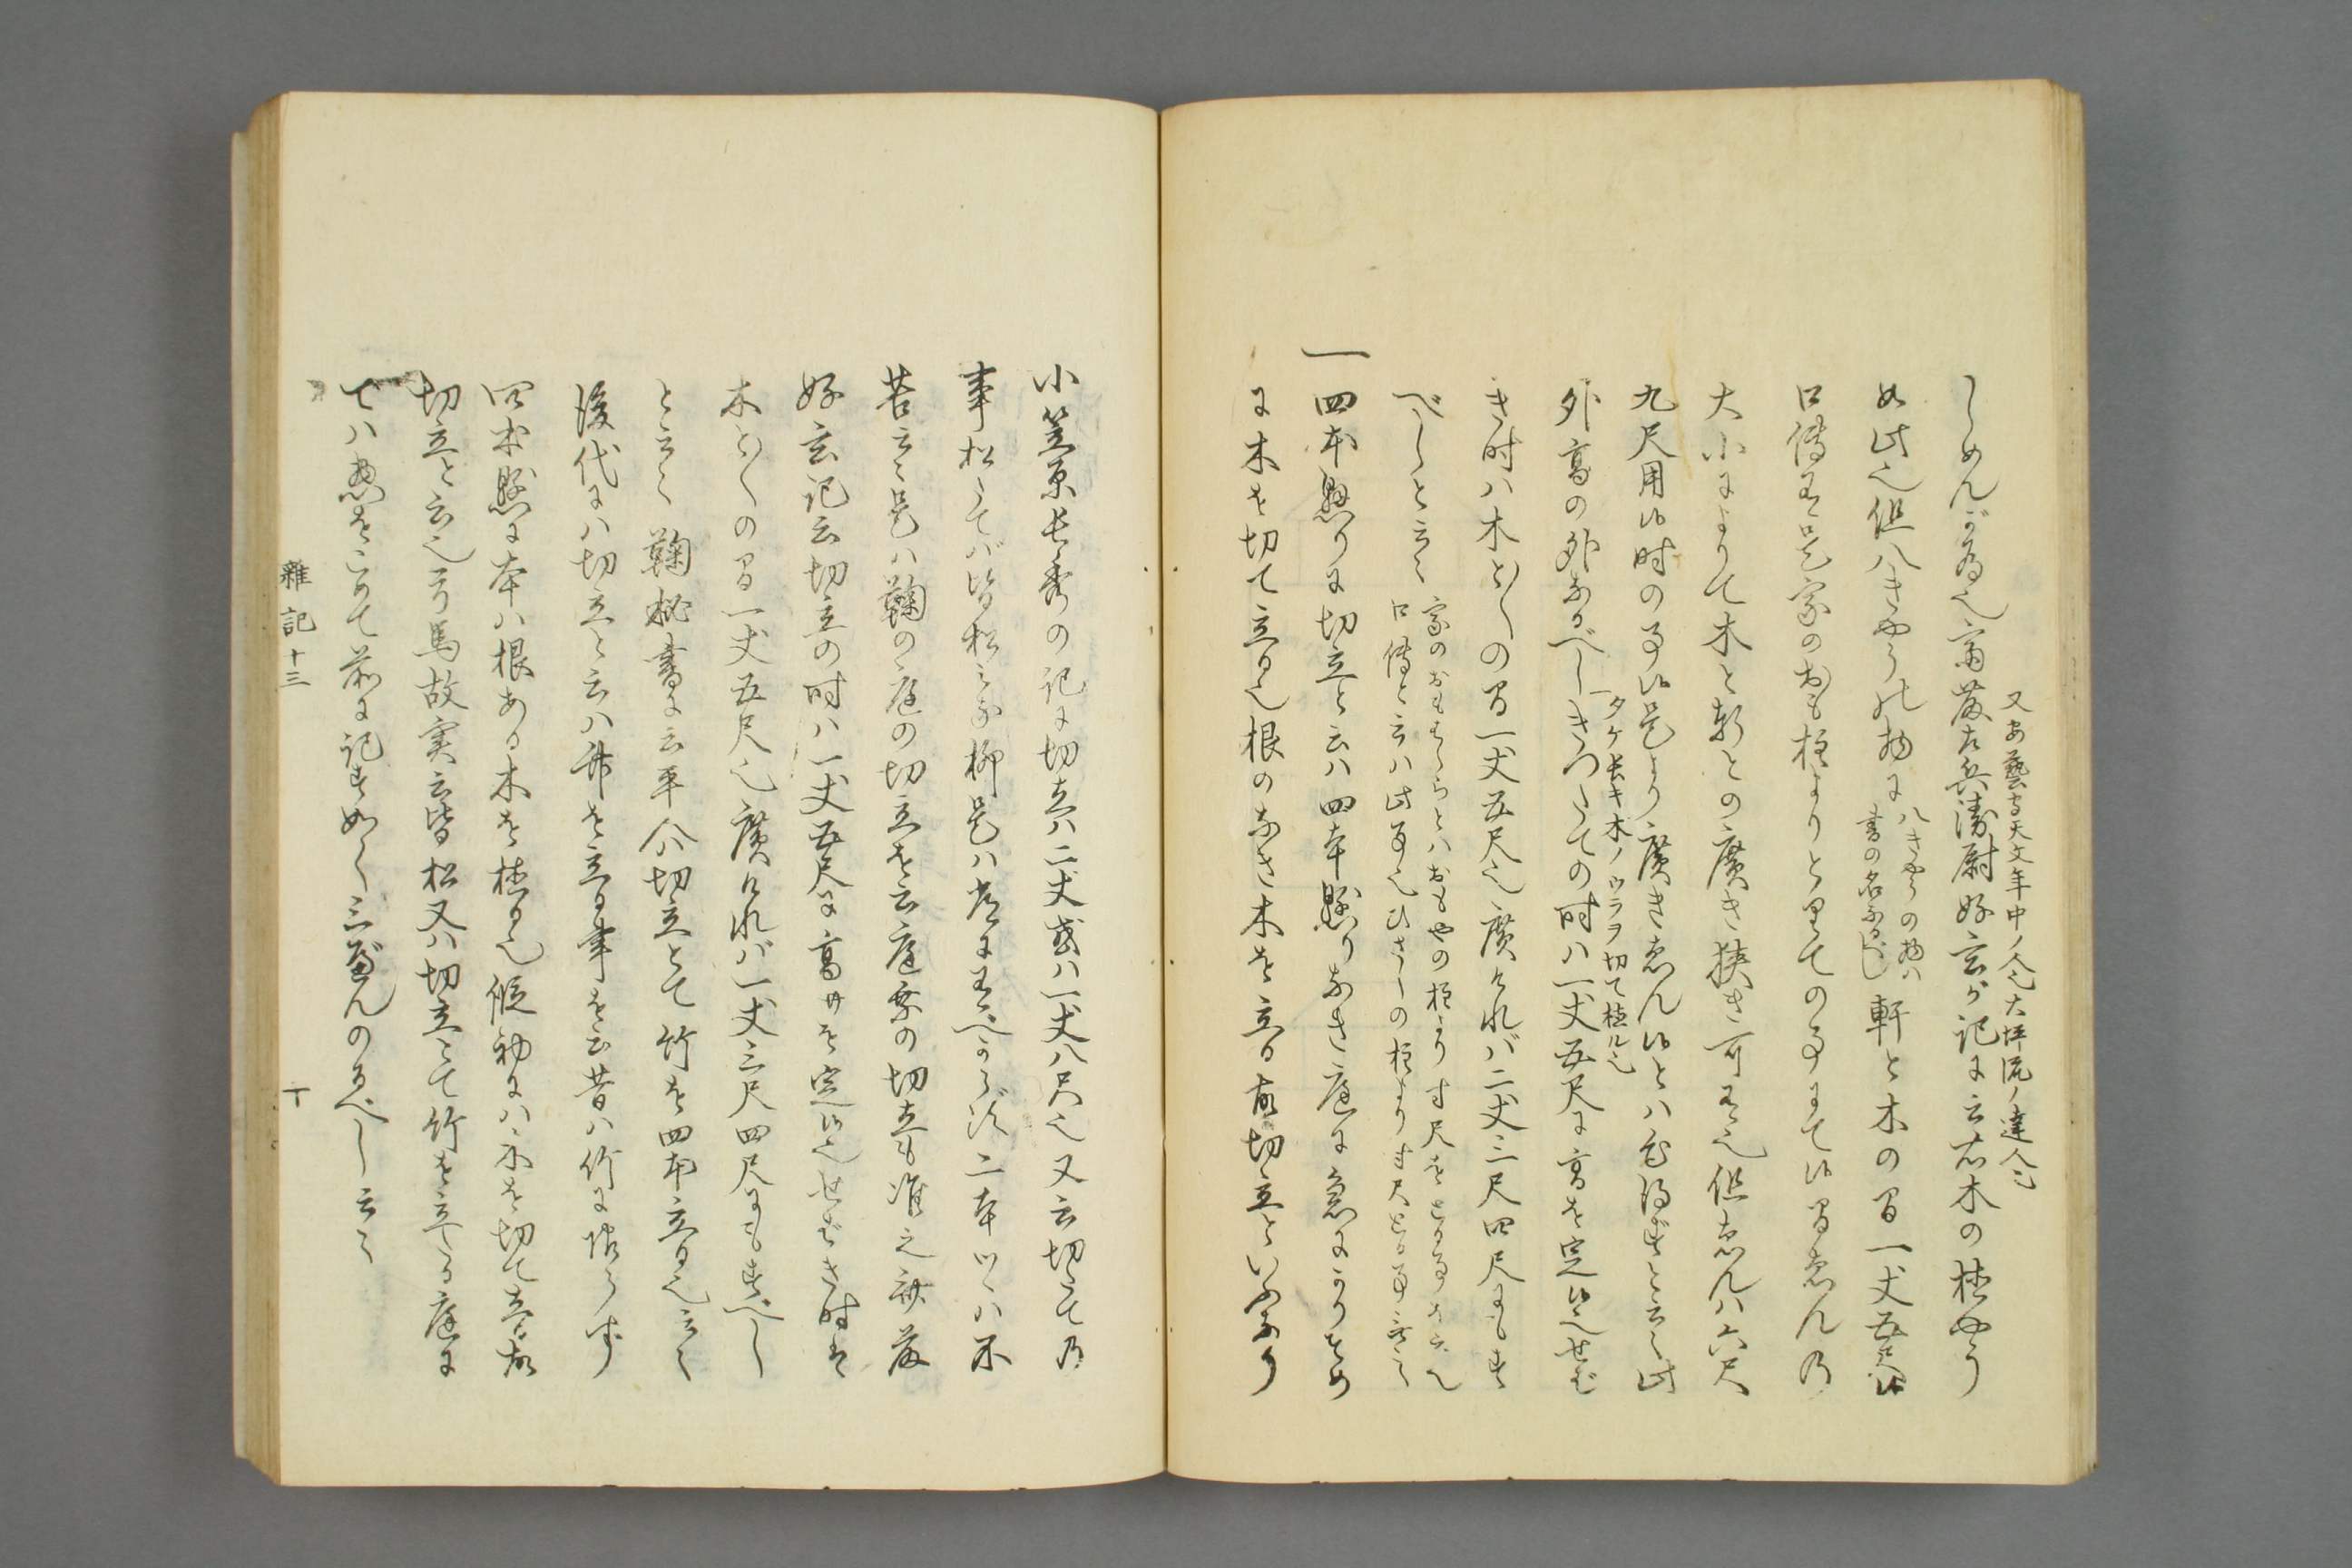 又安藝守天文年中ノ人也大坪流ノ達人也
しめんが為也齋藤左兵衛尉好玄が記に云右木の植やう
如此也但八きやうの物に
八きやうの物ハ
書の名なるべし
軒と木の間一丈五尺候
口傳有是家のおも柱よりとりての事にて候間ゑんの
大小によりて木と軒との廣き狭き可有也但ゑんハ六尺
九尺用候時の事候是より廣きゑん候とハ心得ずと云々此
外高の外なるべしきつたての時ハ一丈五尺に高を定候也せば
タケ長キ木ノウラヲ切て植ル也
き時ハ木と〳〵の間一丈五尺也廣けれバ二丈三尺四尺にもす
べしと云々
家のおもはしらとハおもやの柱より寸尺をとる事を云也
口傳と云ハ此事也ひさしの柱より寸尺とる事云々
一四本懸りに切立と云ハ四本懸りなき庭に急にかりそめ
に木を切て立る也根のなき木を立る故切立といふなり
小笠原長秀の記に切立ハ二丈或ハ一丈八尺也又云切立の
事松にてバ皆松ニテ柳是ハ庭に有べからず二本ツヽハ不
苦云々是ハ鞠の庭の切立を云庭乗の切立も准之齋藤
好玄記云切立の時ハ一丈五尺に高サを定候也せばき時は
木と〳〵の間一丈五尺也廣けれバ一丈三尺四尺にもすべし
と云々鞠秘書に云平人切立とて竹を四本立る也云々
後代にハ切立と云ハ竹を立る事を云昔ハ竹に限らず
四本懸に本ハ根ある木を植る也假初にハ木を切て立る故
切立と云也弓馬故実云皆松又ハ切立とて竹を立てる庭に
てハ悪をこめて前に記す如く三べんのるべし云々
雜記十三
十